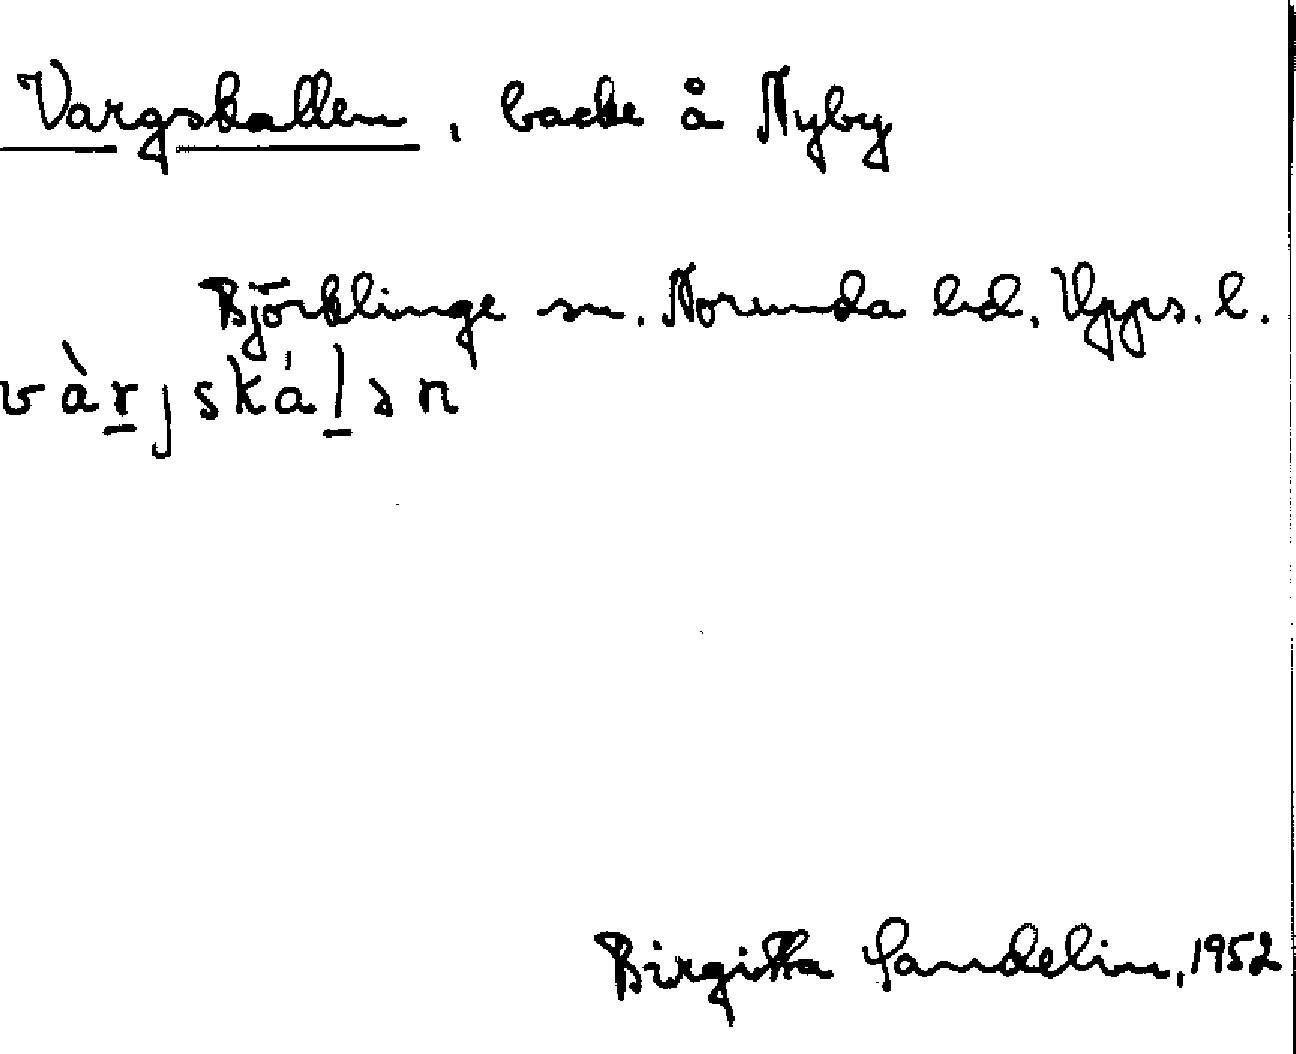 Vargskallen, backe å Nyby
Björklinge sn. Norunda hd. Upps. l.
vàr̲jskál̲ən
Birgitta Sandelin, 1952